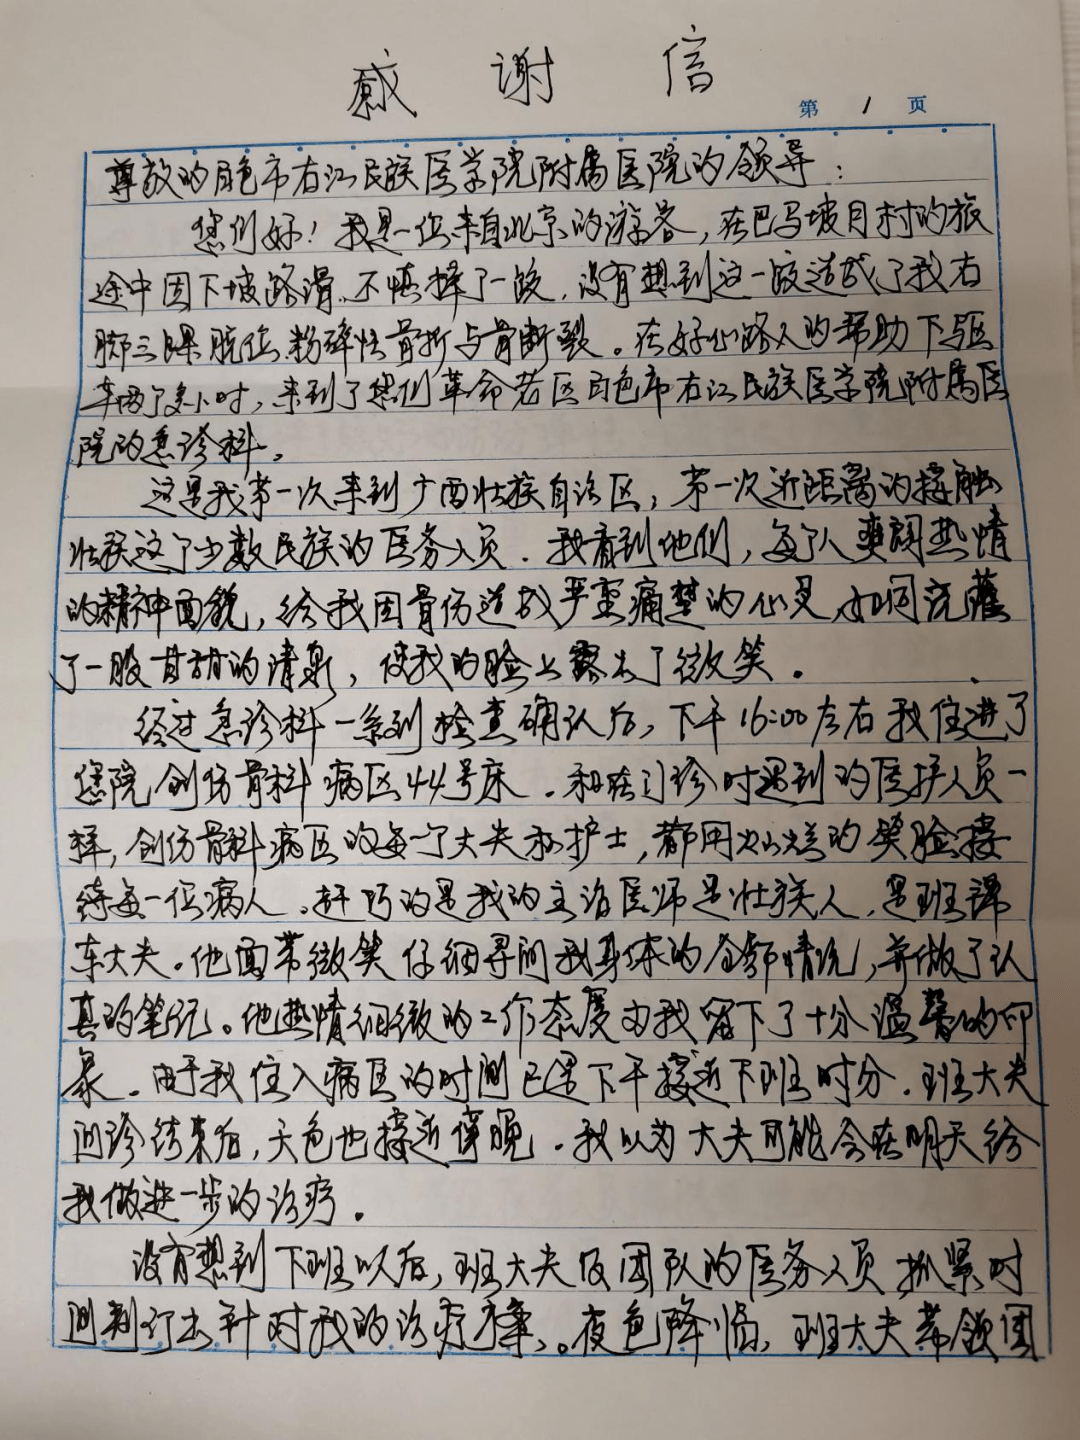 感谢信
第 1 页
尊敬的百色市右江民族医学院附属医院的领导：
您们好！我是一位来自北京的游客，在巴马坡月村的旅
途中因下坡路滑、不慎摔了一跤，没有想到这一跤造成了我右
脚三踝脱位粉碎性骨折与骨断裂。在好心路人的帮助下驱
车两个多小时，来到了您们革命老区百色市右江民族医学院附属医
院的急诊科。
这是我第一次来到广西壮族自治区，第一次近距离的接触
壮族这个少数民族的医务人员．我看到他们，每个人爽朗热情
的精神面貌，给我因骨伤造成严重痛楚的心灵，如同浇灌
了一股甘甜的清泉，使我的脸上露出了微笑．
经过急诊科一系列检查确认后，下午16:00左右我住进了
您院创伤骨科病区44号床．和在门诊时遇到的医护人员一
样，创伤骨科病区的每一个大夫和护士，都用灿烂的笑脸接
待每一位病人．赶巧的是我的主治医师是壮族人，是班锦
东大夫。他面带微笑仔细寻问我身体的全部情况，并做了认
真的笔记。他热情细微的工作态度为我留下了十分温馨的印
象．由于我住入病区的时间已是下午接近下班时分．班大夫
问诊结束后，天色也接近傍晚．我以为大夫可能会在明天给
我做进一步的诊疗。
没有想到下班以后，班大夫及团队的医务人员抓紧时
间制订出针对我的诊疗方案。夜色降临，班大夫带领团